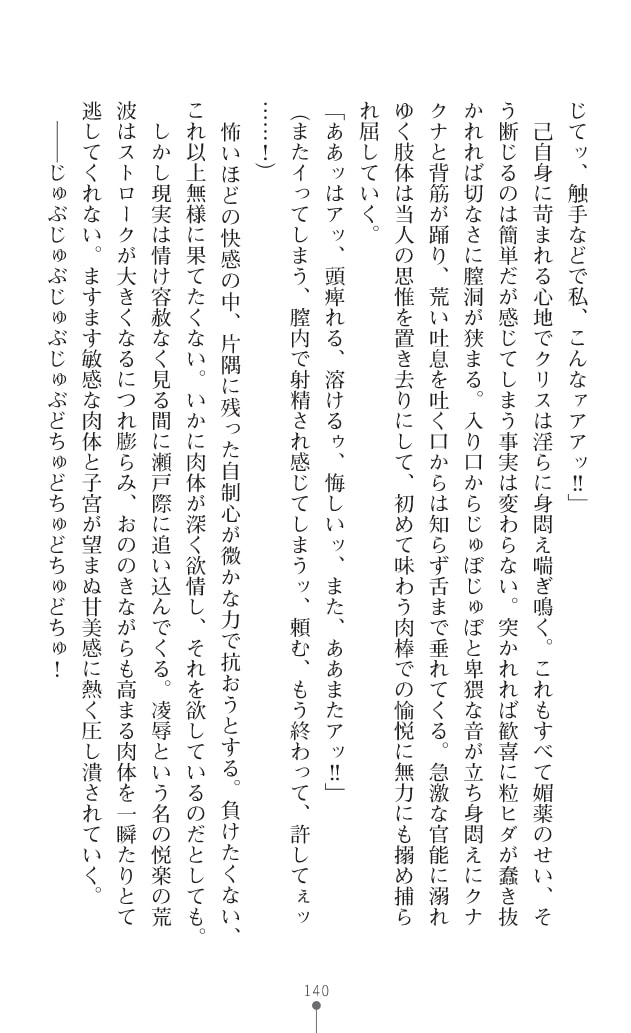 じてッ、触手などで私、こんなァアアッ!!」
　己自身に苛まれる心地でクリスは淫らに身悶え喘ぎ鳴く。これもすべて媚薬のせい、そ
う断じるのは簡単だが感じてしまう事実は変わらない。突かれれば歓喜に粒ヒダが蠢き抜
かれれば切なさに膣洞が狭まる。入り口からじゅぼじゅぼと卑猥な音が立ち身悶えにクナ
クナと背筋が踊り、荒い吐息を吐く口からは知らず舌まで垂れてくる。急激な官能に溺れ
ゆく肢体は当人の思惟を置き去りにして、初めて味わう肉棒での愉悦に無力にも搦め捕ら
れ屈していく。
「ああッはアッ、頭痺れる、溶けるゥ、悔しいッ、また、ああまたアッ!!」
（またイってしまう、膣内で射精され感じてしまうッ、頼む、もう終わって、許してぇッ
……！）
　怖いほどの快感の中、片隅に残った自制心が微かな力で抗おうとする。負けたくない、
これ以上無様に果てたくない。いかに肉体が深く欲情し、それを欲しているのだとしても。
　しかし現実は情け容赦なく見る間に瀬戸際に追い込んでくる。凌辱という名の悦楽の荒
波はストロークが大きくなるにつれ膨らみ、おののきながらも高まる肉体を一瞬たりとて
逃してくれない。ますます敏感な肉体と子宮が望まぬ甘美感に熱く圧し潰されていく。
　――じゅぶじゅぶじゅぶじゅぶどちゅどちゅどちゅどちゅ！
140